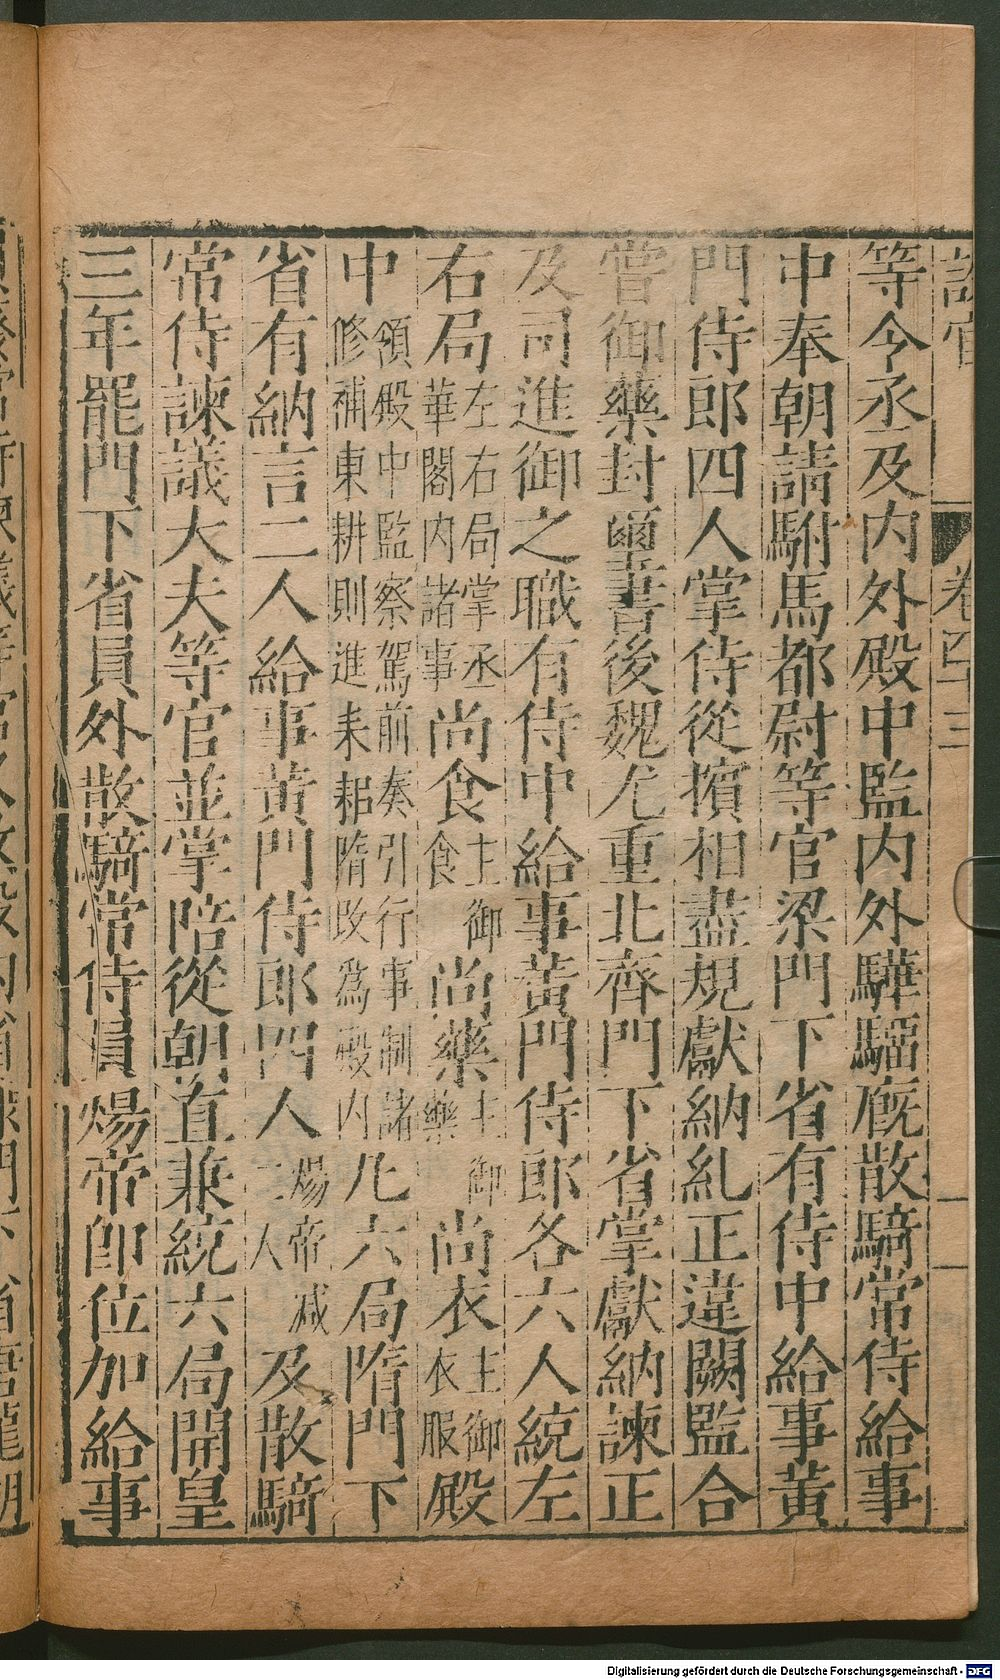 等令丞及内外殿中監内外驊騮廐散騎常侍給事
中奉朝請駙馬都尉等官梁門下省有侍中給事黃
門侍郎四人掌侍從擯相盡規獻納糺正違闕監合
甞御藥封璽書後魏尤重北齊門下省掌獻納諫正
及司進御之職有侍中給事黃門侍郎各六人統左
右局左右局掌丞華閣内諸事尚食主御食尚藥主御藥尚衣主御衣服殿
中領殿中監察駕前奏引行事制諸修補東耕則進耒耜隋改為殿内凡六局隋門下
省有納言二人給事黃門侍郎四人煬帝减二人及散騎
常侍諫議大夫等官並掌陪從朝直兼統六局開皇
三年罷門下省員外散騎常侍員煬帝卽位加給事
卷
Digitalisierung gefördert durch die Deutsche Forschungsgemeinschaft - DFG